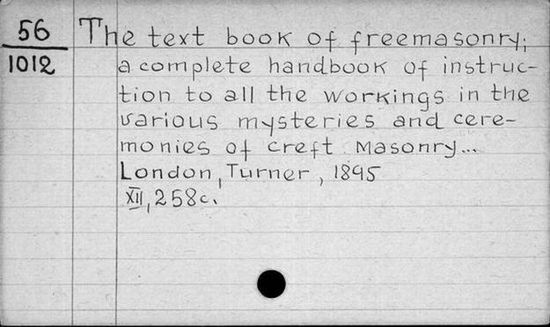 56 The text book of freemasonry;
1012 a complete handbook of instruc-
tion to all the workings in the
various mysteries and cere-
monies of creft Masonry...
London, Turner, 1895
XII, 258c.